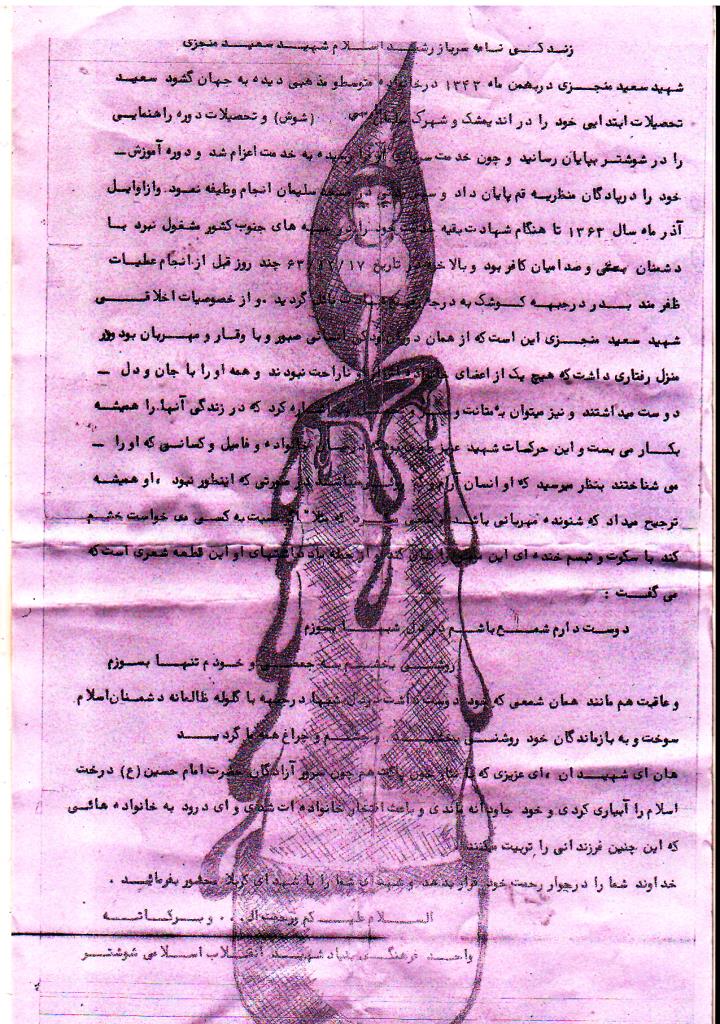 زندگی نامه سرباز رشید اسلام شهید سعید منجزی
شهید سعید منجزی در بهمن ماه ۱۳۴۳ در متوسط و مذهبی دیده به جهان گشود سعید
تحصیلات ابتدایی خود را در اندیمشک و شهرک (شوش) و تحصیلات دوره راهنمایی
را در شوشتر بپایان رسانید و چون خدمت رسیده به خدمت اعزام شد و دوره آموزش ـ
خود را در پادگان منظریه قم پایان داد و سلیمان انجام وظیفه نمود. واز اوایل
آذر ماه سال ۱۳۶۳ تا هنگام شهادت بقیه خود را در جبهه های جنوب کشور مشغول نبرد با
دشمنان بعثی و صدامیان کافر بود و بالاخره در تاریخ چند روز قبل از انجام عملیات
ظفرمند بدر در جبهه کوشک به درجه گردید .و از خصوصیات اخلاقی
شهید سعید منجزی این است که از همان دوران کودکی صبور و با وقار و مهربان بود ودر
منزل رفتاری داشت که هیچ یک از اعضای ناراحت نبودند و همه او را با جان و دل ـ
دوست میداشتند و نیز میتوان به متانت و اشاره کرد که در زندگی آنها را همیشه
بکار می بست و این حرکات شهید خانواده و فامیل و کسانی که او را ـ
می شناختند بنظر میرسید که او انسان صورتی که اینطور نبود ،او همیشه
ترجیح میداد که شنونده مهربانی باشد که مثلا" نسبت به کسی می خواست خشم
کند با سکوت و تبسم خنده ای این یادداشتهای او این قطعه شعری است که
می گفت :
دوست دارم شمع باشم در دل شبها بسوزم
روشنی بخشم به جمعی و خودم تنها بسوزم
و عاقبت هم مانند همان شمعی که خود دوست داشت در دل شبها در جبهه با گلوله ظالمانه دشمنان اسلام
سوخت و به بازماندگان خود روشنی و چراغ گردید
هان ای شهیدان ،ای عزیزی که با خون پاکت هم چون سرور آزادگان حضرت امام حسین (ع) درخت
اسلام را آبیاری کردی و خود جاودانه ماندی و باعث افتخار خانواده ات شدی و ای درود به خانواده هائی
که این چنین فرزندانی را تربیت میکنند
خداوند شما را در جوار رحمت خود قرار بدهد و شهدای شما را با شهدای کربلا محشور بفرمائید .
السلام علیکم و رحمت الله . . و برکاته
واحد فرهنگی بنیاد شهید انقلاب اسلامی شوشتر